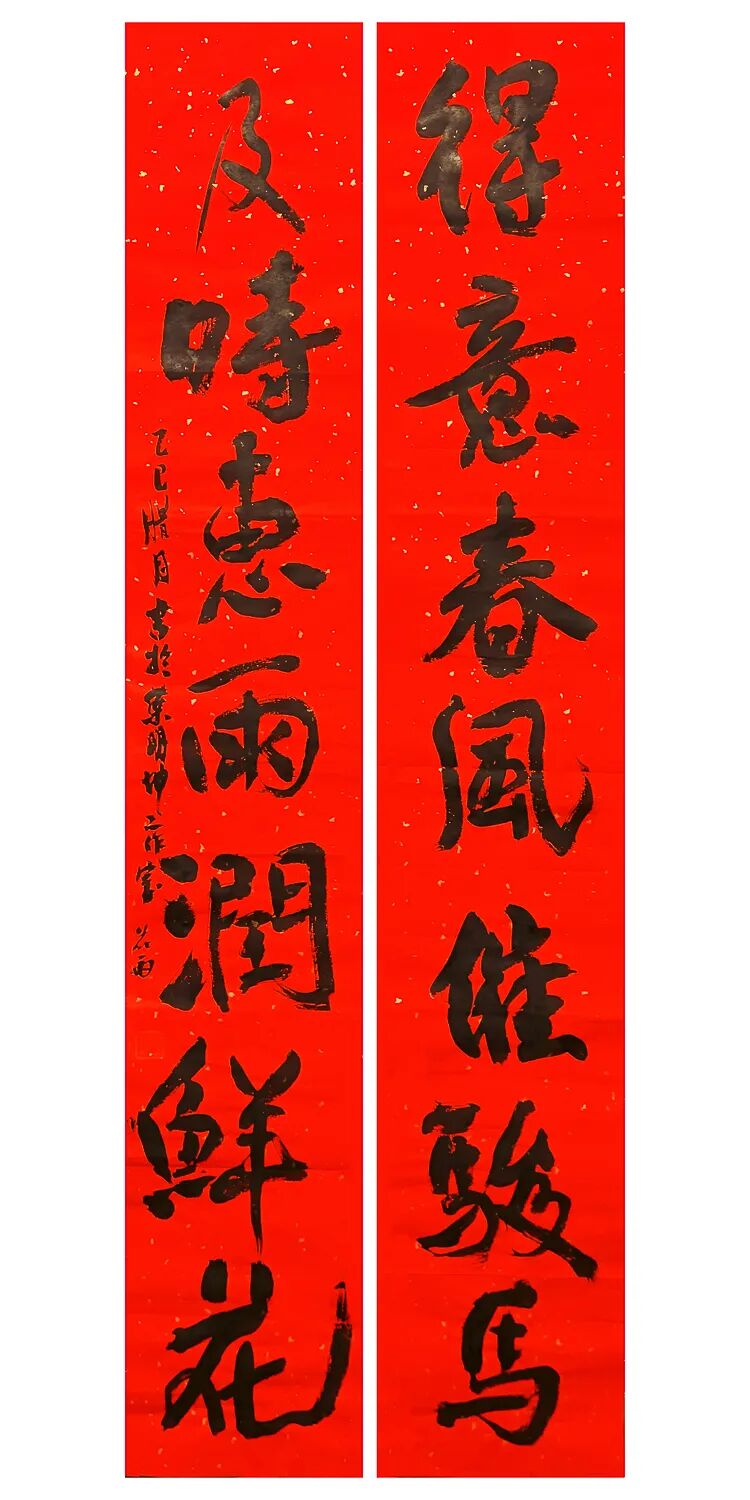 得意春風催駿馬
及時惠雨潤鮮花
乙巳腊月書於葉明坤工作室